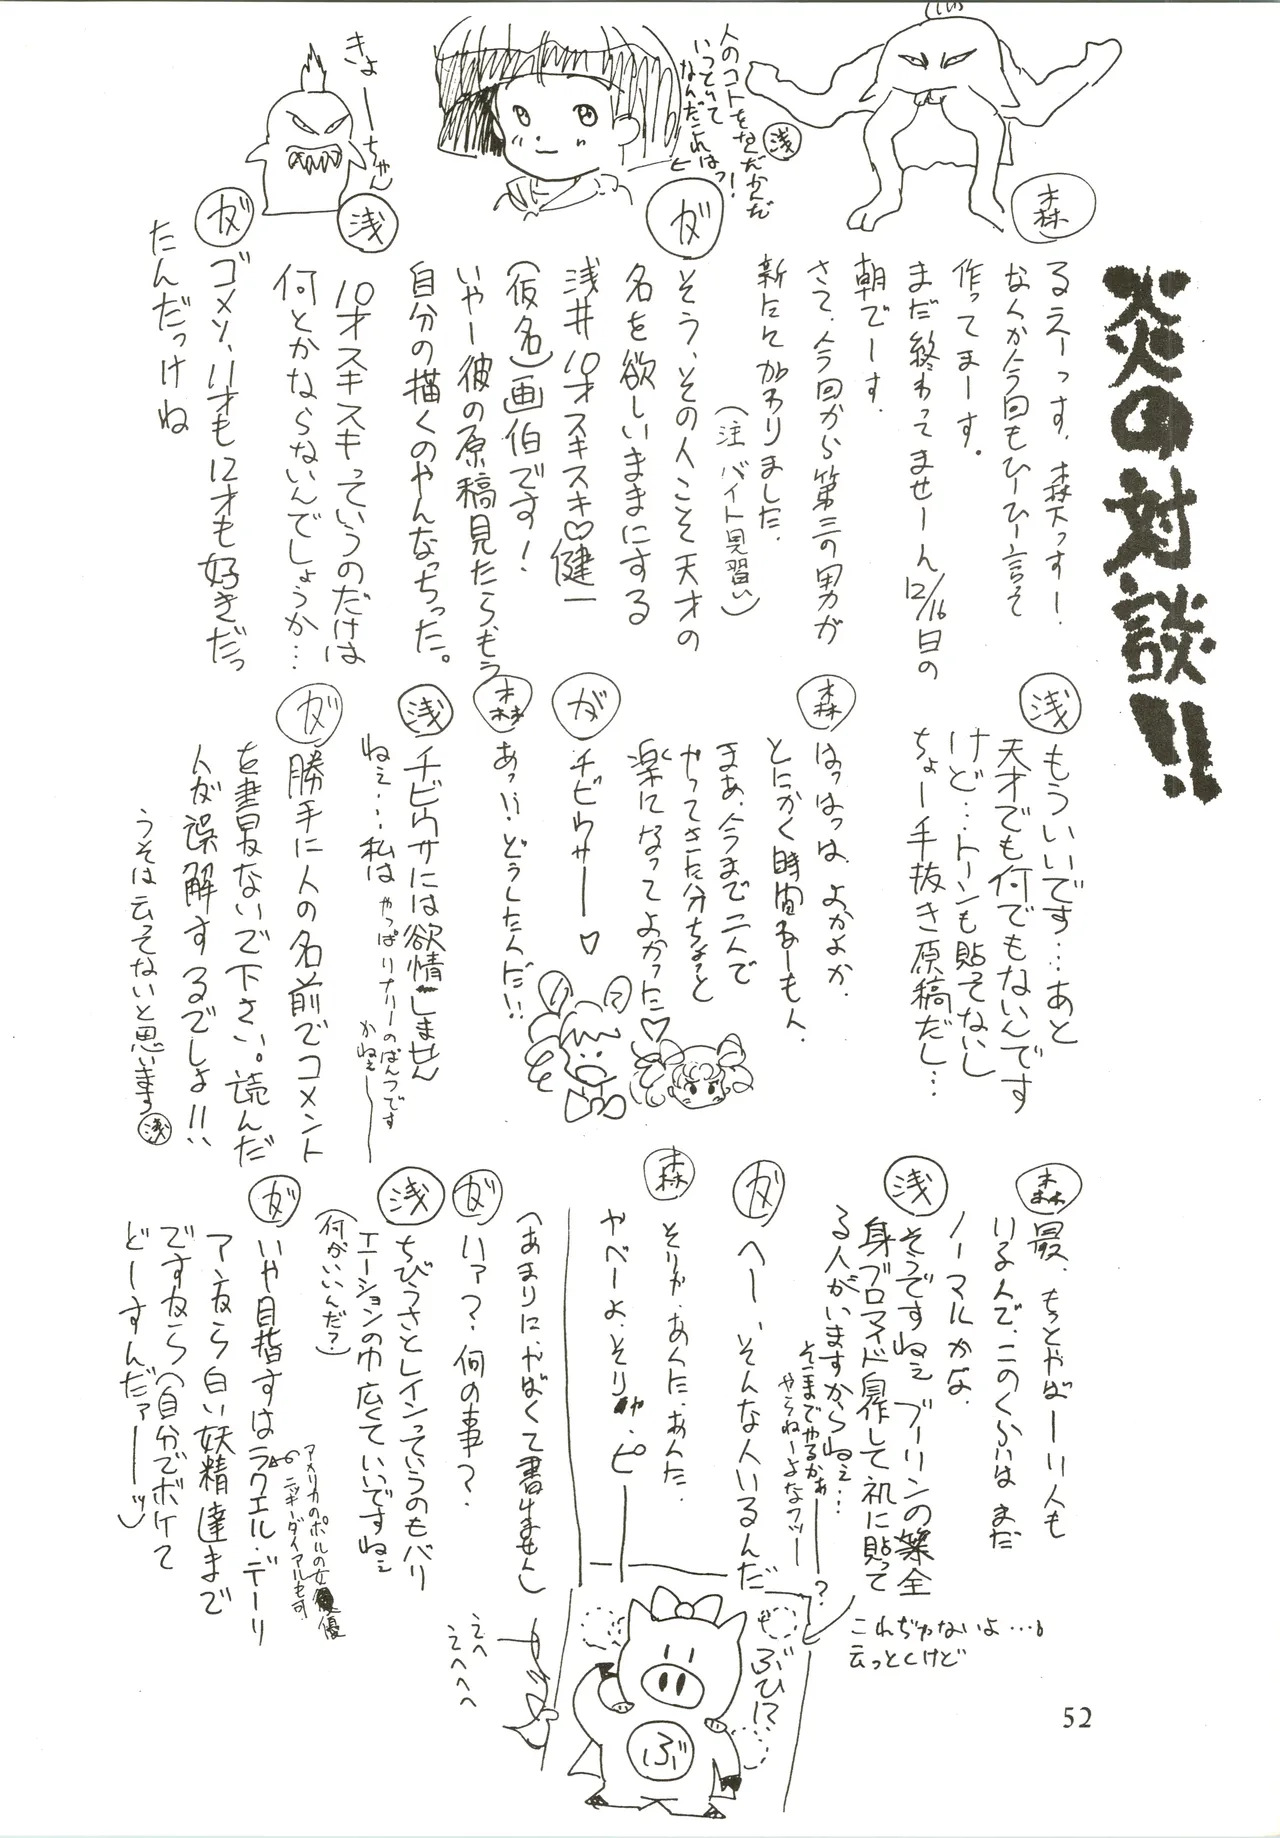 炎の対談!!
森
るえーっす。森でっすー!
なんか今回もひーひー言って
作ってまーす。
まだ終わってませーん12/16日の
朝でーす。
さて、今回から第三の男が
新たに加わりました。
(注 バイト見習い)
ガ
そう、その人こそ天才の
名を欲しいままにする
浅井10才スキスキ♡健一
(仮名)画伯です!
いやー彼の原稿見たら、もう
自分の描くのやんなっちった。
人のコトをなんだかんだ
いっていて
なんだこれはっ!
浅
浅
10才スキスキっていうのだけは
何とかならないんでしょうか…
きょーちゃん
ガ
ゴメソ、11才も12才も好きだっ
たんだっけね
浅
もういいです…あと
天才でも何でもないんです
けど…トーンも貼ってないし
ちょー手抜き原稿だし…
森
はっはっは、よかよか、
とにかく時間ねーもん、
まあ、今まで二人で
やってきた分ちょっと
楽になってよかった♡
ガ
チビウサー♡
森
あっ!!どうした人だ!!
浅
チビウサには欲情しません
ねぇ…私は やっぱりナリーのぱんつです
かねぇー
ガ
勝手に人の名前でコメント
を書かないで下さい。読んだ
人が誤解するでしょ!!
うそは云ってないと思います 浅
森
最、ちとやばーい人も
いる人で、このくらいは まだ
ノーマルかな
浅
そうですねぇ ブーリンの等全
身ブロマイド自作して 机に貼って
る人がいますからねぇ…
そこまでやるかぁー?
やらねーよなフツー
これぢゃないよ…。
云っとくけど
ガ
へー、そんな人いるんだ
森
そりゃ、あんた、あんた、
やべーよ、そりゃ、ピー
(あまりに、やばくて書けません)
ガ
いァ?、何の事?
浅
ちびうさとレインっていうのもバリ
エーションの巾広くていいですねぇ
(何がいいんだ?)
ガ
いや目指すはラクエル・デーリ
アンから白い妖精達まで
ですから(自分でボケて
どーすんだァーッ)
アメリカのポルの女優
ニッキーダイアルも可
えへ
えへへへ
ぶひ!?
ぶ
52